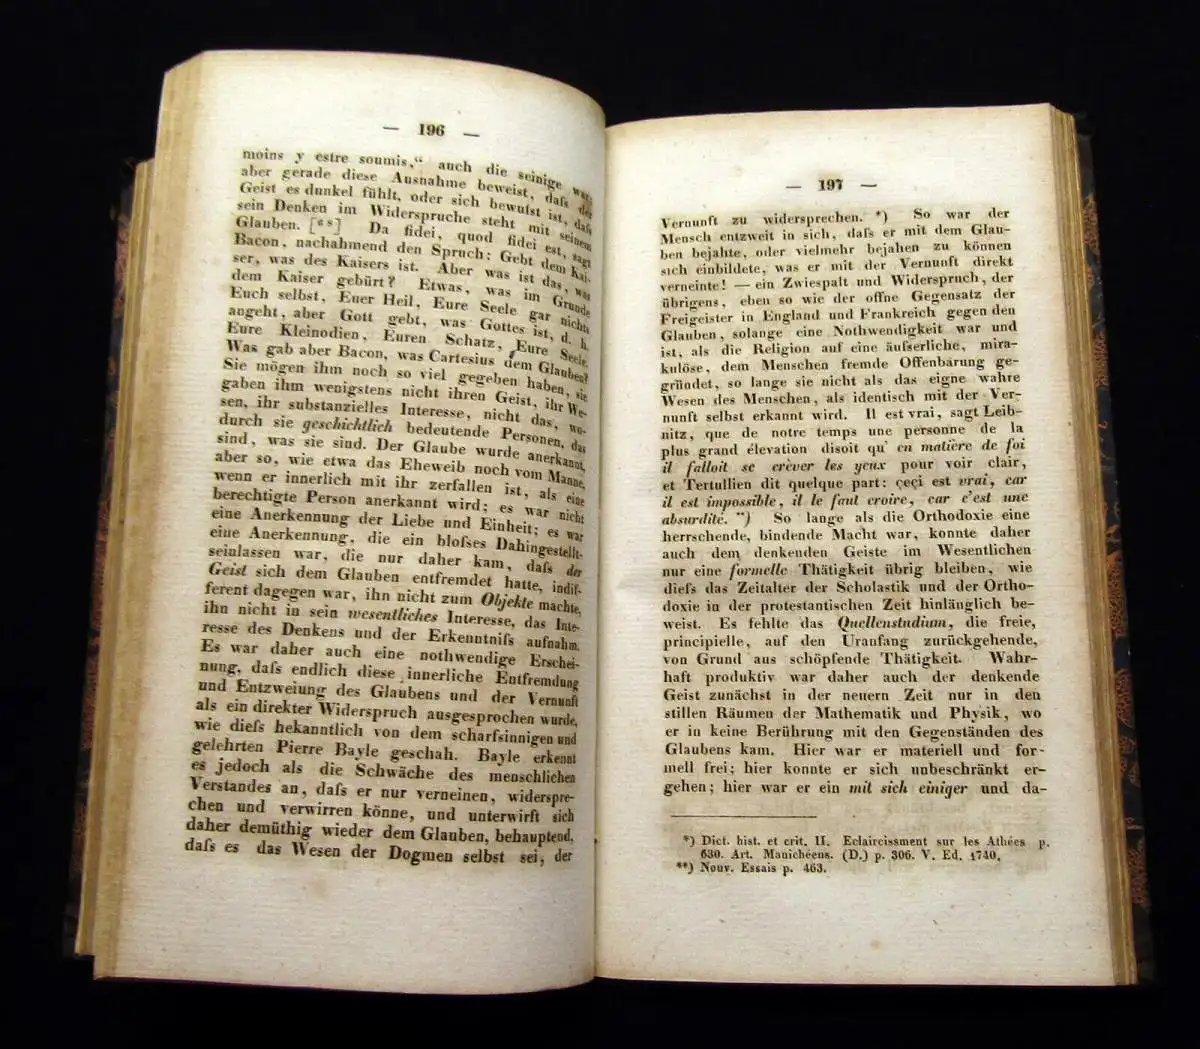 — 196 —
moins y estre soumis,“ auch die seinige war;
aber gerade diese Ausnahme beweist, daſs der
Geist es dunkel fühlt, oder sich bewuſst ist, daſs
sein Denken im Widerspruche steht mit seinem
Glauben. Da fidei, quod fidei est, sagt
Bacon, nachahmend den Spruch: Gebt dem Kai-
ser, was des Kaisers ist. Aber was ist das, was
dem Kaiser gebürt? Etwas, was im Grunde
Euch selbst, Euer Heil, Eure Seele gar nichts
angeht, aber Gott gebt, was Gottes ist, d. h.
Eure Kleinodien, Euren Schatz, Eure Seele.
Was gab aber Bacon, was Cartesius dem Glauben?
Sie mögen ihm noch so viel gegeben haben, sie
gaben ihm wenigstens nicht ihren Geist, ihr We-
sen, ihr substanzielles Interesse, nicht das, wo-
durch sie geschichtlich bedeutende Personen, das
sind, was sie sind. Der Glaube wurde anerkannt,
aber so, wie etwa das Eheweib noch vom Manne,
wenn er innerlich mit ihr zerfallen ist, als eine
berechtigte Person anerkannt wird; es war nicht
eine Anerkennung der Liebe und Einheit; es war
eine Anerkennung, die ein bloſses Dahingestellt-
seinlassen war, die nur daher kam, daſs der
Geist sich dem Glauben entfremdet hatte, indif-
ferent dagegen war, ihn nicht zum Objekte machte,
ihn nicht in sein wesentliches Interesse, das Inte-
resse des Denkens und der Erkenntniſs aufnahm.
Es war daher auch eine nothwendige Erschei-
nung, daſs endlich diese innerliche Entfremdung
und Entzweiung des Glaubens und der Vernunft
als ein direkter Widerspruch ausgesprochen wurde,
wie dieſs bekanntlich von dem scharfsinnigen und
gelehrten Pierre Bayle geschah. Bayle erkennt
es jedoch als die Schwäche des menschlichen
Verstandes an, daſs er nur verneinen, widerspre-
chen und verwirren könne, und unterwirft sich
daher demüthig wieder dem Glauben, behauptend,
daſs es das Wesen der Dogmen selbst sei, der
— 197 —
Vernunft zu widersprechen. *) So war der
Mensch entzweit in sich, daſs er mit dem Glau-
ben bejahte, oder vielmehr bejahen zu können
sich einbildete, was er mit der Vernunft direkt
verneinte! — ein Zwiespalt und Widerspruch, der
übrigens, eben so wie der offne Gegensatz der
Freigeister in England und Frankreich gegen den
Glauben, solange eine Nothwendigkeit war und
ist, als die Religion auf eine äuſserliche, mira-
kulöse, dem Menschen fremde Offenbarung ge-
gründet, so lange sie nicht als das eigne wahre
Wesen des Menschen, als identisch mit der Ver-
nunft selbst erkannt wird. Il est vrai, sagt Leib-
nitz, que de notre temps une personne de la
plus grand élevation disoit qu' en matière de foi
il falloit se crèver les yeux pour voir clair,
et Tertullien dit quelque part: çeçi est vrai, car
il est impossible, il le faut croire, car c'est une
absurdité. **) So lange als die Orthodoxie eine
herrschende, bindende Macht war, konnte daher
auch dem denkenden Geiste im Wesentlichen
nur eine formelle Thätigkeit übrig bleiben, wie
dieſs das Zeitalter der Scholastik und der Ortho-
doxie in der protestantischen Zeit hinlänglich be-
weist. Es fehlte das Quellenstudium, die freie,
principielle, auf den Uranfang zurückgehende,
von Grund aus schöpfende Thätigkeit. Wahr-
haft produktiv war daher auch der denkende
Geist zunächst in der neuern Zeit nur in den
stillen Räumen der Mathematik und Physik, wo
er in keine Berührung mit den Gegenständen des
Glaubens kam. Hier war er materiell und for-
mell frei; hier konnte er sich unbeschränkt er-
gehen; hier war er ein mit sich einiger und da-
*) Dict. hist. et crit. II. Eclaircissment sur les Athées p.
630. Art. Manichéens. (D.) p. 306. V. Ed. 1740.
**) Nouv. Essais p. 463.